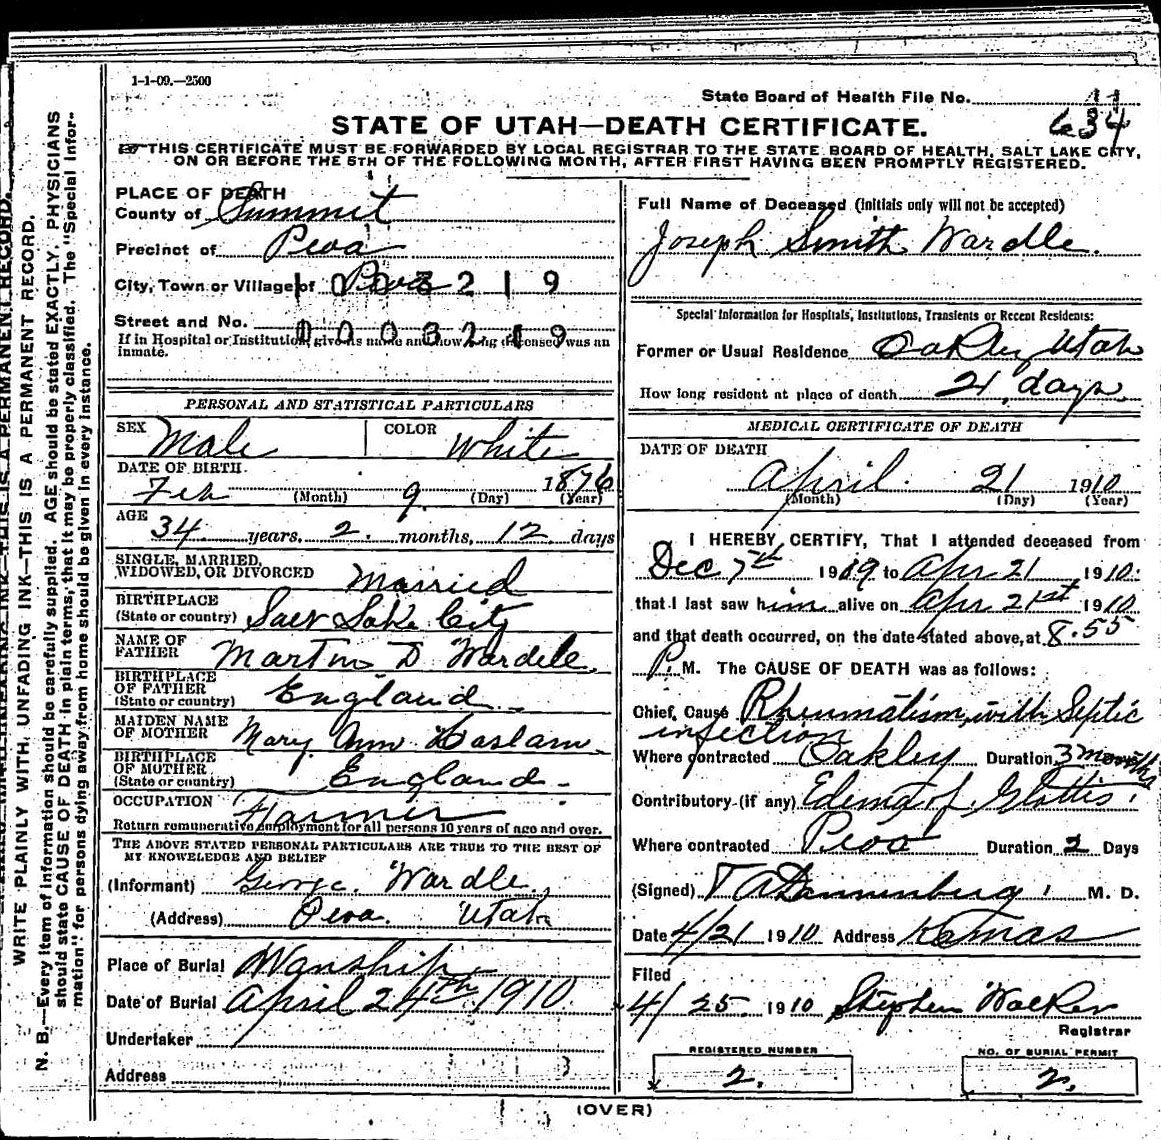 1-1-09.—2500
State Board of Health File No. 11
634
STATE OF UTAH—DEATH CERTIFICATE.
THIS CERTIFICATE MUST BE FORWARDED BY LOCAL REGISTRAR TO THE STATE BOARD OF HEALTH, SALT LAKE CITY,
ON OR BEFORE THE 5TH OF THE FOLLOWING MONTH, AFTER FIRST HAVING BEEN PROMPTLY REGISTERED.
WRITE PLAINLY WITH UNFADING INK—THIS IS A PERMANENT RECORD.
N. B.—Every item of information should be carefully supplied. AGE should be stated EXACTLY. PHYSICIANS
should state CAUSE OF DEATH in plain terms, that it may be properly classified. The "Special Infor-
mation" for persons dying away from home should be given in every instance.
PLACE OF DEATH
County of Summit
Precinct of Peoa
City, Town or Village of Peoa
1003219
Street and No.
1003219
If in Hospital or Institution, give its name and how long deceased was an
inmate.
PERSONAL AND STATISTICAL PARTICULARS
SEX Male COLOR White
DATE OF BIRTH
Feb (Month) 9 (Day) 1876 (Year)
AGE
34 years, 2 months, 12 days
SINGLE, MARRIED,
WIDOWED, OR DIVORCED Married
BIRTHPLACE
(State or country) Salt Lake City
NAME OF
FATHER Martin D Wardle
BIRTHPLACE
OF FATHER
(State or country) England
MAIDEN NAME
OF MOTHER Mary Ann Haslam
BIRTHPLACE
OF MOTHER
(State or country) England
OCCUPATION Farmer
Return remunerative employment for all persons 10 years of age and over.
THE ABOVE STATED PERSONAL PARTICULARS ARE TRUE TO THE BEST OF
MY KNOWLEDGE AND BELIEF
(Informant) George Wardle
(Address) Peoa. Utah
Place of Burial Wanship
Date of Burial April 24th 1910
Undertaker
Address
Full Name of Deceased (Initials only will not be accepted)
Joseph Smith Wardle.
Special Information for Hospitals, Institutions, Transients or Recent Residents:
Former or Usual Residence Oakley Utah
How long resident at place of death 21 days
MEDICAL CERTIFICATE OF DEATH
DATE OF DEATH
April 21 1910
(Month) (Day) (Year)
I HEREBY CERTIFY, That I attended deceased from
Dec 7th 1909 to Apr 21 1910
that I last saw him alive on Apr 21st 1910
and that death occurred, on the date stated above, at 8.55
P. M. The CAUSE OF DEATH was as follows:
Chief Cause Rheumatism with Septic
infection
Where contracted Oakley Duration 3 months
Contributory (if any) Edema of Glottis
Where contracted Peoa Duration 2 Days
(Signed) M. D.
Date 4/21 1910 Address Kamas
Filed
4/25 1910 Stephen Walker
Registrar
REGISTERED NUMBER
2.
NO. OF BURIAL PERMIT
2.
(OVER)